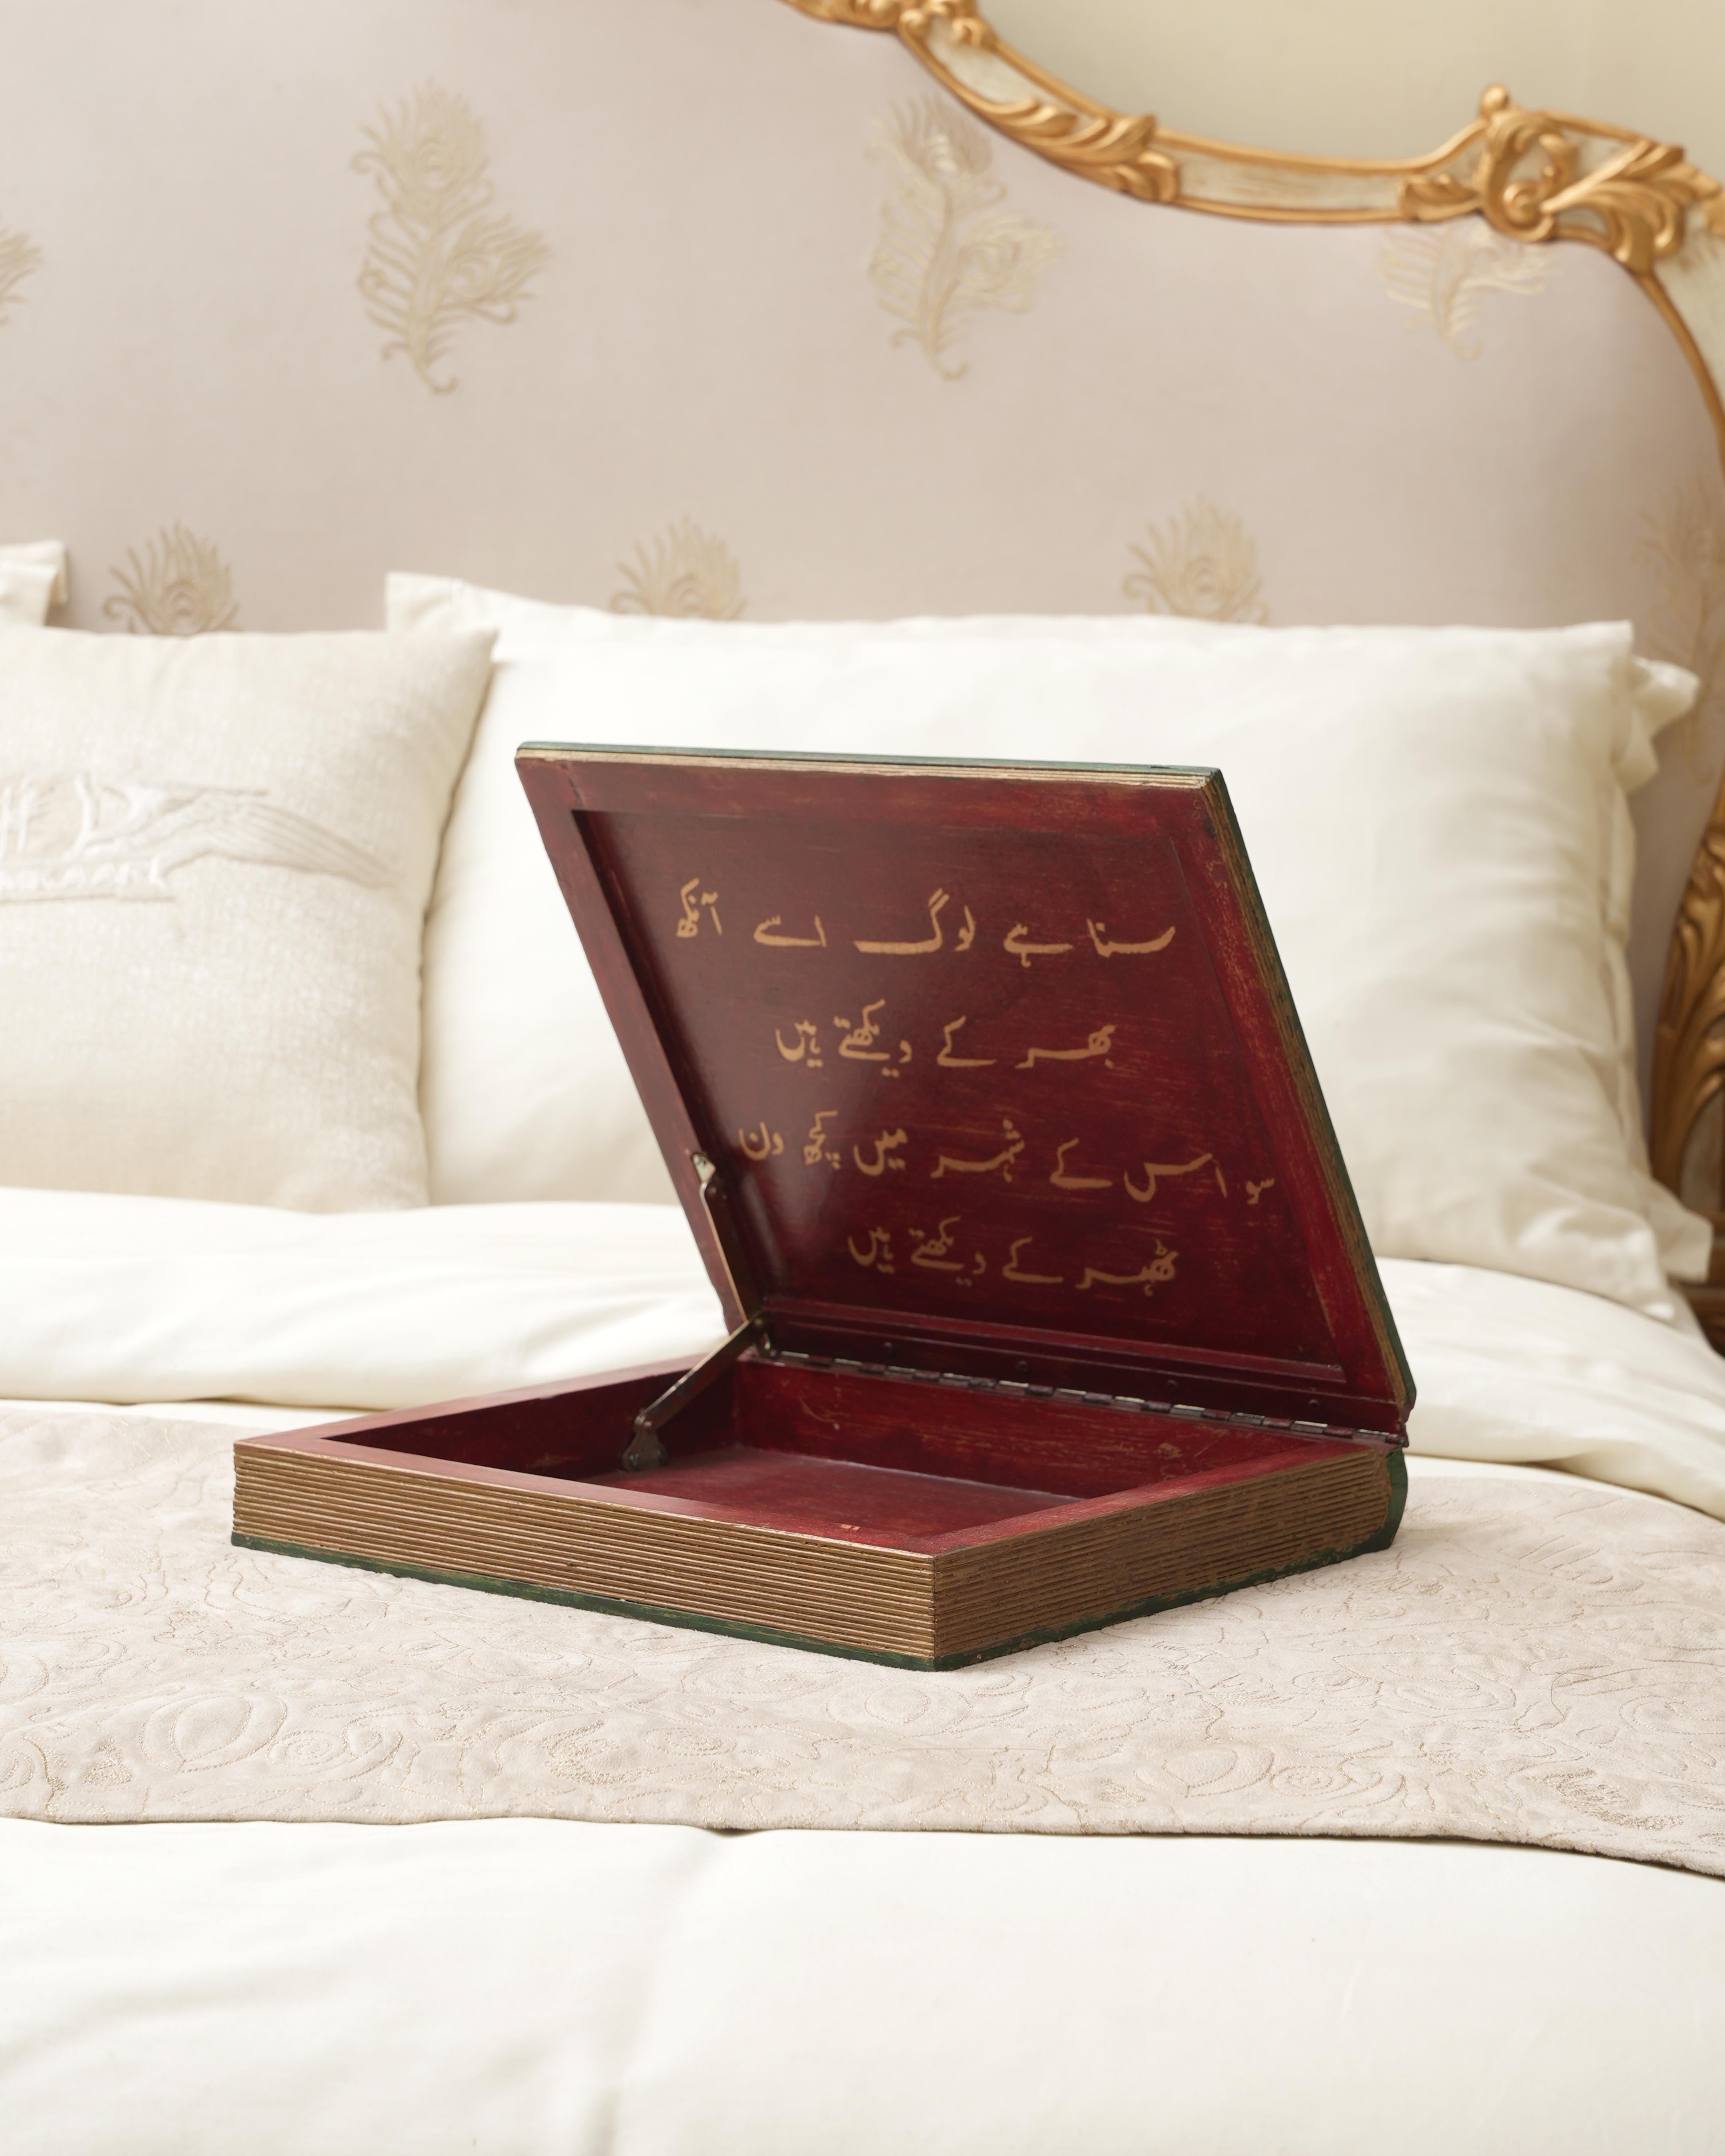 سنا ہے لوگ اسے آنکھ
بھر کے دیکھتے ہیں
سو اس کے شہر میں کچھ دن
ٹھہر کے دیکھتے ہیں